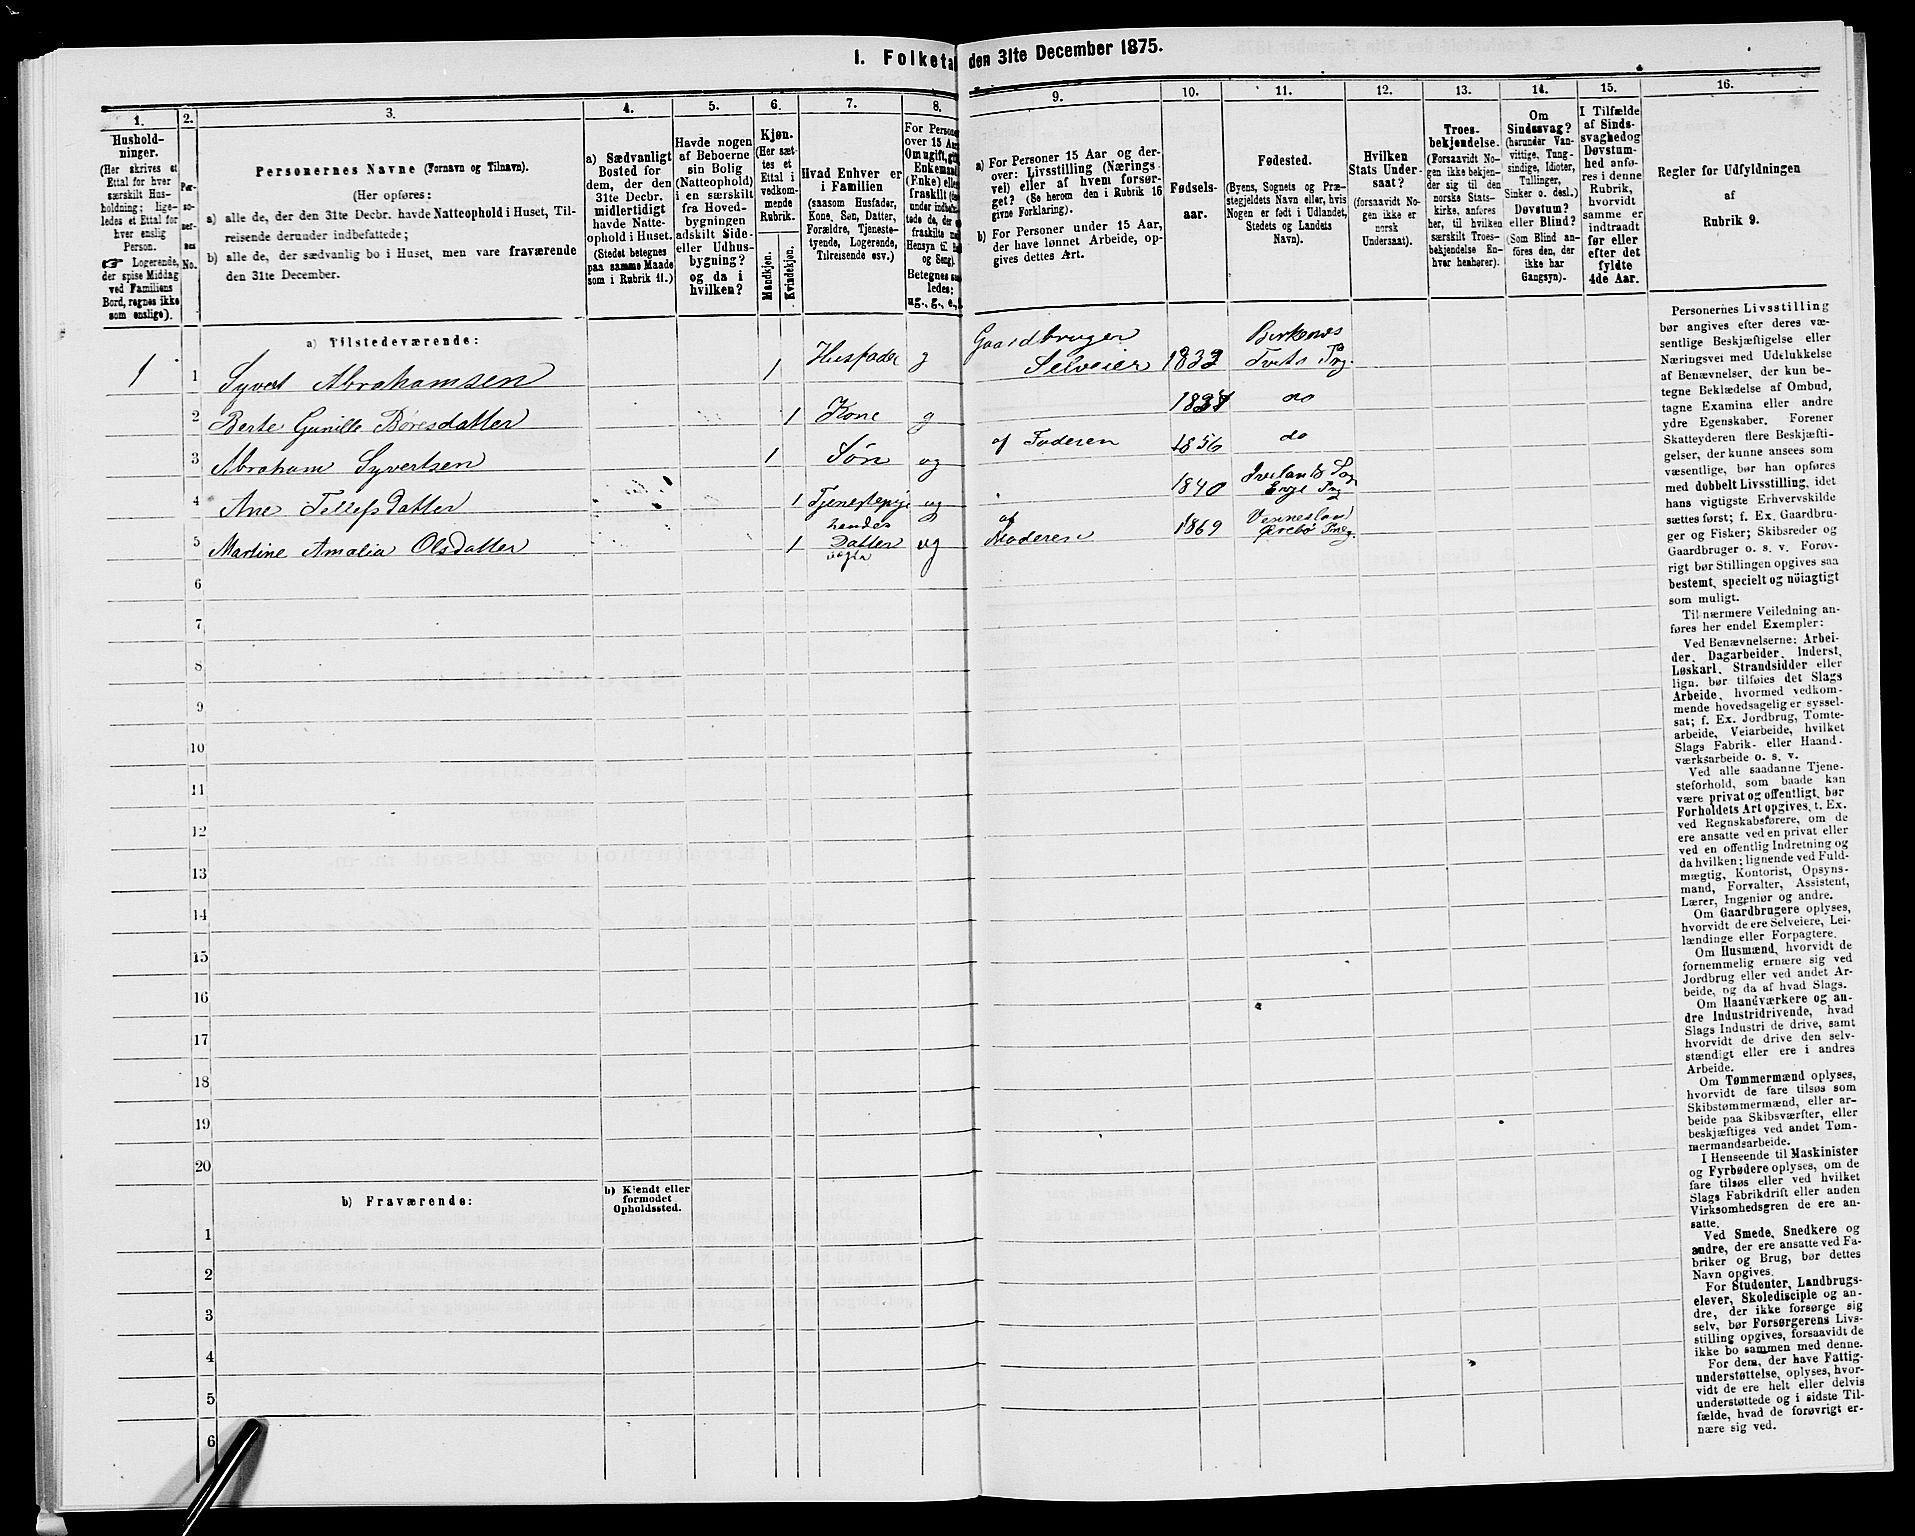 1. Folketal den 31te December 1875.
1.
Hushold-
ninger.
(Her skrives et
Ettal for hver
særskilt Hus-
holdning; lige-
ledes et Ettal for
hver enslig
Person.
☞ Logerende,
der spise Middag
ved Familiens
Bord, regnes ikke
som enslige).
2.
Per-
so-
ner-
nes
No.
3.
Personernes Navne (Fornavn og Tilnavn).
(Her opføres:
a) alle de, der den 31te Decbr. havde Natteophold i Huset, Til-
reisende derunder indbefattede;
b) alle de, der sædvanlig bo i Huset, men vare fraværende
den 31te December.
4.
a) Sædvanligt
Bosted for
dem, der den
31te Decbr.
midlertidigt
havde Natte-
ophold i Huset.
(Stedet betegnes
paa samme Maade
som i Rubrik 11.)
5.
Havde nogen
af Beboerne
sin Bolig
(Natteophold)
i en særskilt
fra Hoved-
bygningen
adskilt Side-
eller Udhus-
bygning?
og da i
hvilken?
6.
Kjøn.
(Her sæt-
tes et
Ettal i
vedkom-
mende
Rubrik.
Mandkjøn.
Kvindekjøn.
7.
Hvad Enhver er
i Familien
(saasom Husfader,
Kone, Søn, Datter,
Forældre, Tjeneste-
tyende, Logerende,
Tilreisende osv.)
8.
For Person
over 15 Aar
Om ugift, gift
Enkemand
(Enke) eller
fraskilt
under indbefat-
tede de, der
fraskilte
Hensyn til
og Seng).
Betegnes saa-
ledes:
ug., g., e.,
9.
a) For Personer 15 Aar og der-
over: Livsstilling (Nærings-
vei) eller af hvem forsør-
get? (Se herom den i Rubrik 16
givne Forklaring).
b) For Personer under 15 Aar,
der have lønnet Arbeide, op-
gives dettes Art.
10.
Fødsels-
aar.
11.
Fødested.
(Byens, Sognets og Præ-
stegjeldets Navn eller, hvis
Nogen er født i Udlandet,
Stedets og Landets
Navn).
12.
Hvilken
Stats Under-
saat?
(forsaavidt No-
gen ikke er
norsk
Undersaat).
13.
Troes-
bekjendelse.
(Forsaavidt No-
gen ikke bekjen-
der sig til den
norske Stats-
kirke, anføres
her, til hvilken
særskilt Troes-
bekjendelse En-
hver henhører).
14.
Om
Sindssvag?
(herunder Van-
vittige, Tung-
sindige, Idioter,
Tullinger,
Sinker o. desl.)
Døvstum?
eller Blind?
(Som Blind an-
føres den, der
ikke har
Gangsyn).
15.
I Tilfælde
af Sinds-
svaghed og
Døvstum-
hed anfø-
res i denne
Rubrik,
hvorvidt
samme er
indtraadt
før eller
efter det
fyldte
4de Aar.
16.
Regler for Udfyldningen
af
Rubrik 9.
a) Tilstedeværende:
1 1 Syvert Abrahamsen 1 Husfader g Gaardbruger Selveier 1833 Birkenes Tvets Pg.
2 Berte Gunille Børesdatter 1 Kone g do
3 Abraham Syvertsen 1 Søn ug af Faderen 1856 do
4 Ane Tellefsdatter 1 ug 1840 Ivelands
5 Martine Amalia Olsdatter 1 hendes Datter ug af Moderen 1869 Øvrebø
6
7
8
9
10
11
12
13
14
15
16
17
18
19
20
b) Fraværende:
b) Kjendt eller
formodet
Opholdssted.
1
2
3
4
5
6
Personernes Livsstilling
bør angives efter deres væ-
sentlige Beskjæftigelse eller
Næringsvei med Udelukkelse
af Benævnelser, der kun be-
tegne Beklædelse af Ombud,
tagne Examina eller andre
ydre Egenskaber. Forener
Skatteyderen flere Beskjæfti-
gelser, der kunne ansees som
væsentlige, bør han opføres
med dobbelt Livsstilling, idet
hans vigtigste Erhvervskilde
sættes først; f. Ex. Gaardbru-
ger og Fisker; Skibsreder og
Gaardbruger o. s. v. Forøv-
rigt bør Stillingen opgives saa
bestemt, specielt og nöiagtigt
som muligt.
Til nærmere Veiledning an-
føres her endel Exempler:
Ved Benævnelserne: Arbei-
der, Dagarbeider, Inderst,
Løskarl, Strandsidder eller
lign. bør tilføies det Slags
Arbeide, hvormed vedkom-
mende hovedsagelig er syssel-
sat; f. Ex. Jordbrug, Tomte-
arbeide, Veiarbeide, hvilket
Slags Fabrik- eller Haand-
værksarbeide o. s. v.
Ved alle saadanne Tjene-
steforhold, som baade kan
være privat og offentligt, bør
Forholdets Art opgives, t. Ex.
ved Regnskabsførere, om de
ere ansatte ved en privat eller
ved en offentlig Indretning og
da hvilken; lignende ved Fuld-
mægtig, Kontorist, Opsyns-
mand, Forvalter, Assistent,
Lærer, Ingeniør og andre.
Om Gaardbrugere oplyses,
hvorvidt de ere Selveiere, Lei-
lændinge eller Forpagtere.
Om Husmænd, hvorvidt de
fornemmelig ernære sig ved
Jordbrug eller ved andet Ar-
beide, og da af hvad Slags.
Om Haandværkere og an-
dre Industridrivende, hvad
Slags Industri de drive, samt
hvorvidt de drive den selv-
stændigt eller ere i andres
Arbeide.
Om Tømmermænd oplyses,
hvorvidt de fare tilsøs som
Skibstømmermænd, eller ar-
beide paa Skibsværfter, eller
beskjæftiges ved andet Tøm-
mermandsarbeide.
I Henseende til Maskinister
og Fyrbødere oplyses, om de
fare tilsøs eller ved hvilket
Slags Fabrikdrift eller anden
Virksomhedsgren de ere an-
satte.
Ved Smede, Snedkere og
andre, der ere ansatte ved Fa-
briker og Brug, bør dettes
Navn opgives.
For Studenter, Landbrugs-
elever, Skoledisciple og an-
dre, der ikke forsørge sig
selv, bør Forsørgerens Livs-
stilling opgives, forsaavidt de
ikke bo sammen med denne.
For dem, der have Fattig-
understøttelse, oplyses, hvor-
vidt de ere helt eller delvis
understøttede og i sidste Til-
fælde, hvad de forøvrigt er-
nære sig ved.